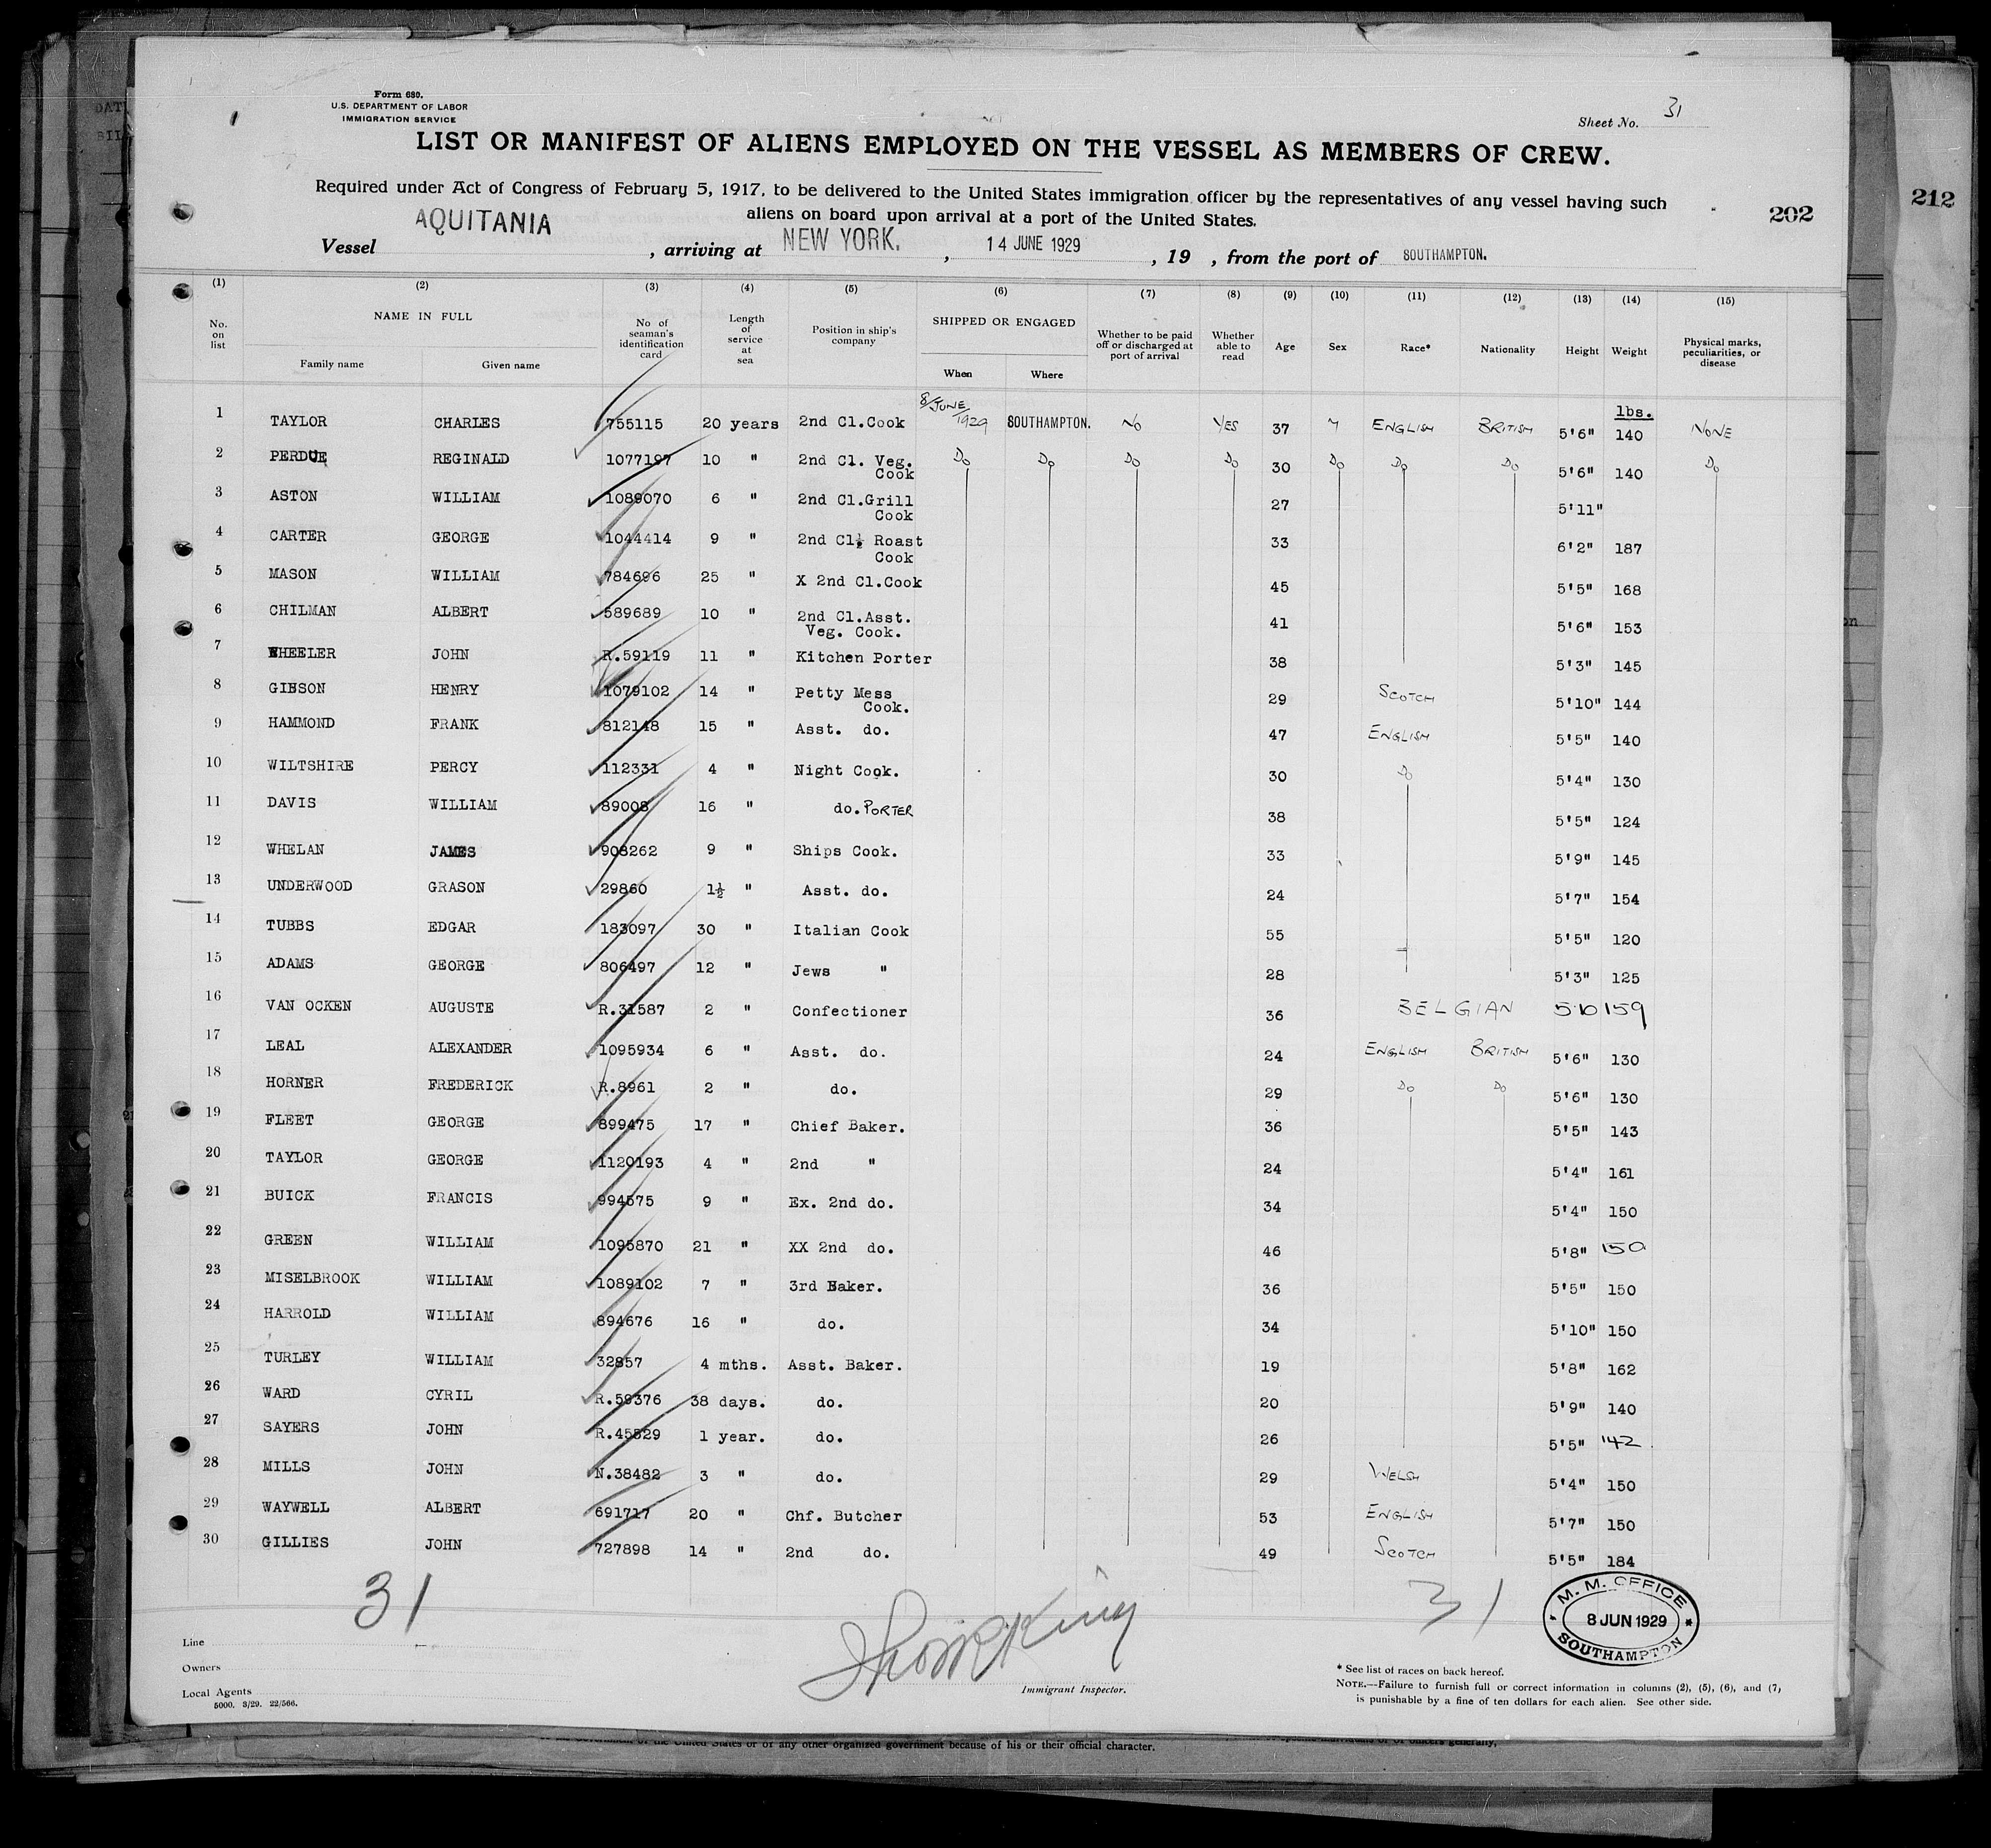 Form 680.
U.S. DEPARTMENT OF LABOR
IMMIGRATION SERVICE
Sheet No. 31
LIST OR MANIFEST OF ALIENS EMPLOYED ON THE VESSEL AS MEMBERS OF CREW.
Required under Act of Congress of February 5, 1917, to be delivered to the United States immigration officer by the representatives of any vessel having such
aliens on board upon arrival at a port of the United States.
202
212
Vessel AQUITANIA, arriving at NEW YORK., 14 JUNE 1929, 19 , from the port of SOUTHAMPTON.
(1) (2) (3) (4) (5) (6) (7) (8) (9) (10) (11) (12) (13) (14) (15)
No. on list NAME IN FULL Family name Given name No of seaman's identification card Length of service at sea Position in ship's company SHIPPED OR ENGAGED When Where Whether to be paid off or discharged at port of arrival Whether able to read Age Sex Race* Nationality Height Weight Physical marks, peculiarities, or disease
lbs.
1 TAYLOR CHARLES 755115 20 years 2nd Cl.Cook 8/JUNE/1929 SOUTHAMPTON. NO YES 37 M ENGLISH BRITISH 5'6" 140 NONE
2 PERDUE REGINALD 1077197 10 " 2nd Cl. Veg. Cook Do Do Do Do 30 Do Do Do 5'6" 140 Do
3 ASTON WILLIAM 1089070 6 " 2nd Cl.Grill Cook 27 5'11"
4 CARTER GEORGE 1044414 9 " 2nd Cl. Roast Cook 33 6'2" 187
5 MASON WILLIAM 784696 25 " X 2nd Cl.Cook 45 5'5" 168
6 CHILMAN ALBERT 589689 10 " 2nd Cl.Asst. Veg. Cook. 41 5'6" 153
7 WHEELER JOHN R.59119 11 " Kitchen Porter 38 5'3" 145
8 GIBSON HENRY 1079102 14 " Petty Mess Cook. 29 SCOTCH 5'10" 144
9 HAMMOND FRANK 812148 15 " Asst. do. 47 ENGLISH 5'5" 140
10 WILTSHIRE PERCY 112331 4 " Night Cook. 30 Do 5'4" 130
11 DAVIS WILLIAM 89008 16 " do. PORTER 38 5'5" 124
12 WHELAN JAMES 908262 9 " Ships Cook. 33 5'9" 145
13 UNDERWOOD GRASON 29860 1½ " Asst. do. 24 5'7" 154
14 TUBBS EDGAR 183097 30 " Italian Cook 55 5'5" 120
15 ADAMS GEORGE 806497 12 " Jews " 28 5'3" 125
16 VAN OCKEN AUGUSTE R.31587 2 " Confectioner 36 BELGIAN 5.10 159
17 LEAL ALEXANDER 1095934 6 " Asst. do. 24 ENGLISH BRITISH 5'6" 130
18 HORNER FREDERICK R.8961 2 " do. 29 Do Do 5'6" 130
19 FLEET GEORGE 899475 17 " Chief Baker. 36 5'5" 143
20 TAYLOR GEORGE 1120193 4 " 2nd " 24 5'4" 161
21 BUICK FRANCIS 994575 9 " Ex. 2nd do. 34 5'4" 150
22 GREEN WILLIAM 1095870 21 " XX 2nd do. 46 5'8" 150
23 MISELBROOK WILLIAM 1089102 7 " 3rd Baker. 36 5'5" 150
24 HARROLD WILLIAM 894676 16 " do. 34 5'10" 150
25 TURLEY WILLIAM 32857 4 mths. Asst. Baker. 19 5'8" 162
26 WARD CYRIL R.59376 38 days. do. 20 5'9" 140
27 SAYERS JOHN R.45529 1 year. do. 26 5'5" 142
28 MILLS JOHN N.38482 3 " do. 29 WELSH 5'4" 150
29 WAYWELL ALBERT 691717 20 " Chf. Butcher 53 ENGLISH 5'7" 150
30 GILLIES JOHN 727898 14 " 2nd do. 49 SCOTCH 5'5" 184
31
31
M. M. OFFICE
8 JUN 1929
SOUTHAMPTON
Line
Owners
Local Agents
5000. 3/29. 22/566.
King
Immigrant Inspector.
* See list of races on back hereof.
NOTE.—Failure to furnish full or correct information in columns (2), (5), (6), and (7,
is punishable by a fine of ten dollars for each alien. See other side.
of the United States or of any other organized government because of his or their official character.